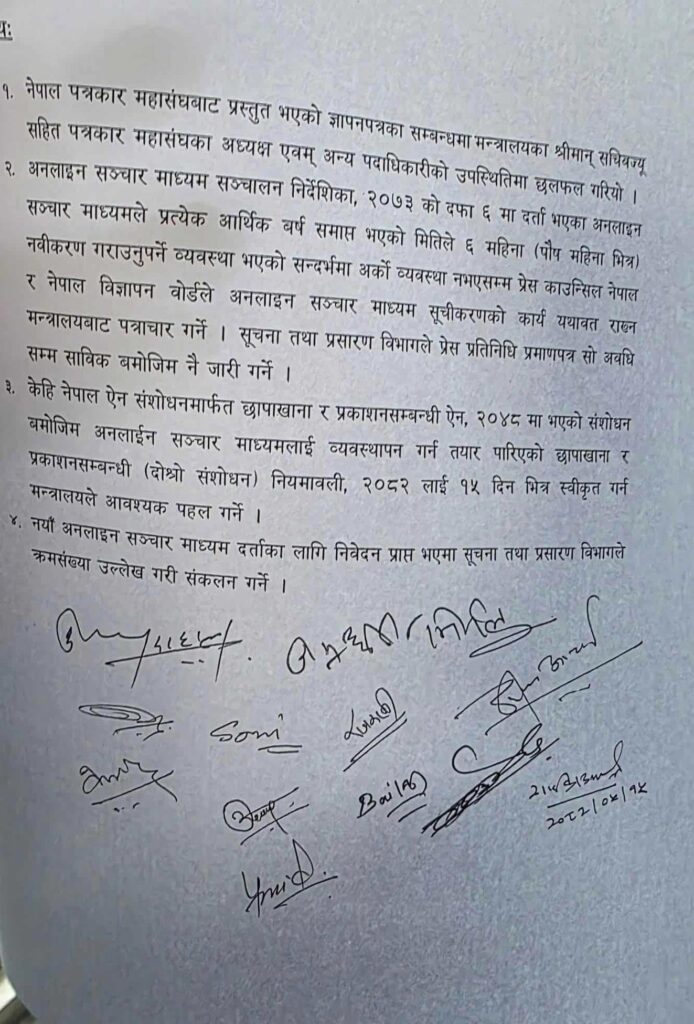 यः
१. नेपाल पत्रकार महासंघबाट प्रस्तुत भएको ज्ञापनपत्रका सम्बन्धमा मन्त्रालयका श्रीमान् सचिवज्यू
सहित पत्रकार महासंघका अध्यक्ष एवम् अन्य पदाधिकारीको उपस्थितिमा छलफल गरियो ।
२. अनलाइन सञ्चार माध्यम सञ्चालन निर्देशिका, २०७३ को दफा ६ मा दर्ता भएका अनलाइन
सञ्चार माध्यमले प्रत्येक आर्थिक वर्ष समाप्त भएको मितिले ६ महिना (पौष महिना भित्र)
नवीकरण गराउनुपर्ने व्यवस्था भएको सन्दर्भमा अर्को व्यवस्था नभएसम्म प्रेस काउन्सिल नेपाल
र नेपाल विज्ञापन वोर्डले अनलाइन सञ्चार माध्यम सूचीकरणको कार्य यथावत राख्न
मन्त्रालयबाट पत्राचार गर्ने । सूचना तथा प्रसारण विभागले प्रेस प्रतिनिधि प्रमाणपत्र सो अवधि
सम्म साविक बमोजिम नै जारी गर्ने ।
३. केहि नेपाल ऐन संशोधनमार्फत छापाखाना र प्रकाशनसम्बन्धी ऐन, २०४८ मा भएको संशोधन
बमोजिम अनलाईन सञ्चार माध्यमलाई व्यवस्थापन गर्न तयार पारिएको छापाखाना र
प्रकाशनसम्बन्धी (दोश्रो संशोधन) नियमावली, २०८२ लाई १५ दिन भित्र स्वीकृत गर्न
मन्त्रालयले आवश्यक पहल गर्ने ।
४. नयाँ अनलाइन सञ्चार माध्यम दर्ताका लागि निवेदन प्राप्त भएमा सूचना तथा प्रसारण विभागले
क्रमसंख्या उल्लेख गरी संकलन गर्ने ।
Soni